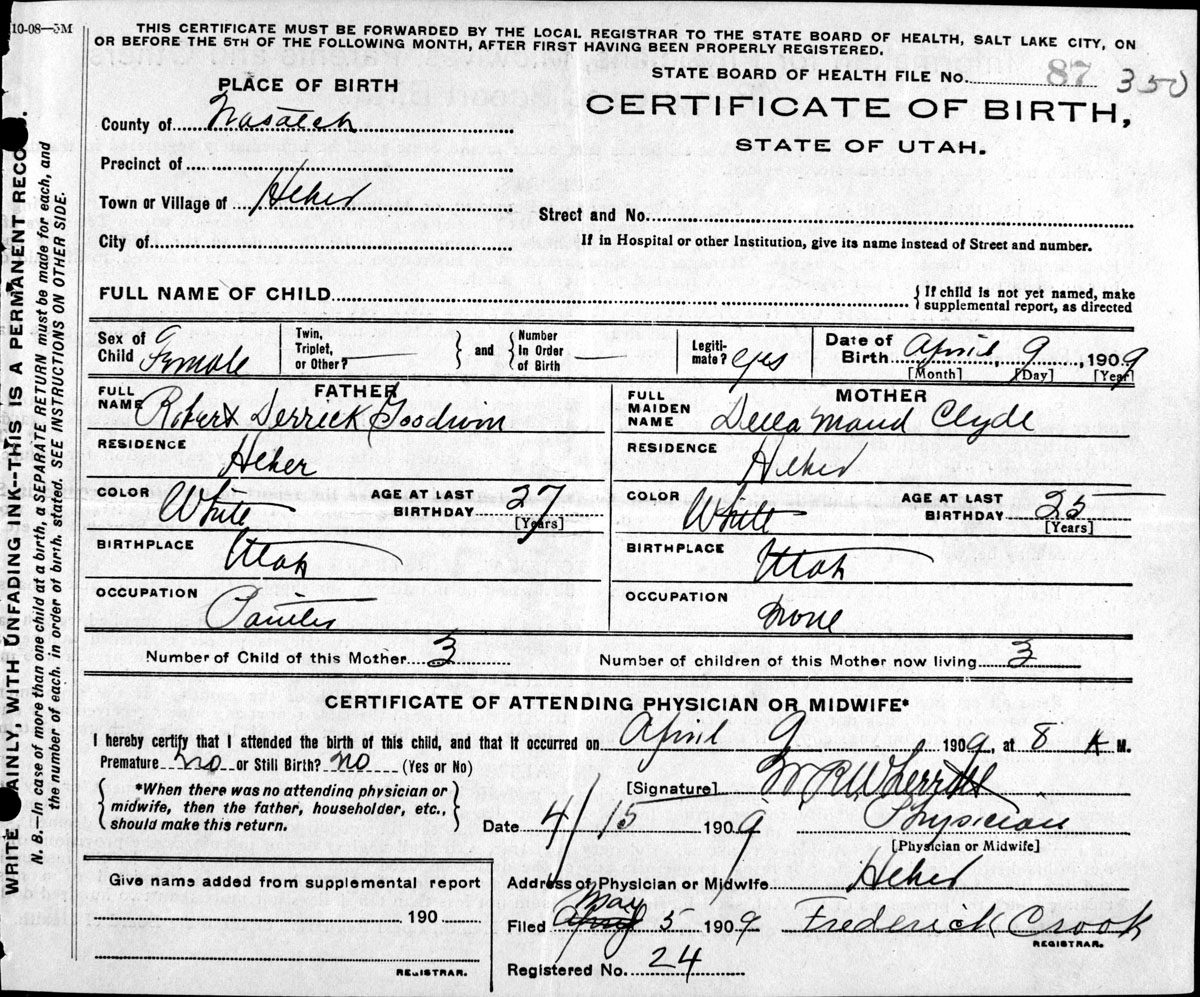 10-08—5M
THIS CERTIFICATE MUST BE FORWARDED BY THE LOCAL REGISTRAR TO THE STATE BOARD OF HEALTH, SALT LAKE CITY, ON
OR BEFORE THE 5TH OF THE FOLLOWING MONTH, AFTER FIRST HAVING BEEN PROPERLY REGISTERED.
STATE BOARD OF HEALTH FILE No. 87 350
PLACE OF BIRTH
CERTIFICATE OF BIRTH,
STATE OF UTAH.
County of Wasatch
Precinct of
Town or Village of Heber
Street and No.
City of
If in Hospital or other Institution, give its name instead of Street and number.
FULL NAME OF CHILD
If child is not yet named, make
supplemental report, as directed
Sex of Child Female
Twin, Triplet, or Other? —
and
Number In Order of Birth —
Legiti-mate? yes
Date of Birth April 9, 1909
[Month] [Day] [Year]
FATHER
FULL NAME Robert Derrick Goodwin
MOTHER
FULL MAIDEN NAME Della Maud Clyde
RESIDENCE Heber
RESIDENCE Heber
COLOR White AGE AT LAST BIRTHDAY 27 [Years]
COLOR White AGE AT LAST BIRTHDAY 25 [Years]
BIRTHPLACE Utah
BIRTHPLACE Utah
OCCUPATION Painter
OCCUPATION None
Number of Child of this Mother 3
Number of children of this Mother now living 3
CERTIFICATE OF ATTENDING PHYSICIAN OR MIDWIFE*
I hereby certify that I attended the birth of this child, and that it occurred on April 9 1909, at 8 A M.
Premature no or Still Birth? no (Yes or No)
*When there was no attending physician or
midwife, then the father, householder, etc.,
should make this return.
[Signature] W R Wherritt
Date 4/15 1909
Physician
[Physician or Midwife]
Give name added from supplemental report
190
REGISTRAR.
Address of Physician or Midwife Heber
Filed April May 5 1909 Frederick Crook
REGISTRAR.
Registered No. 24
WRITE AINLY, WITH UNFADING INK--THIS IS A PERMANENT RECO
N. B.—In case of more than one child at a birth, a SEPARATE RETURN must be made for each, and
the number of each, in order of birth, stated. SEE INSTRUCTIONS ON OTHER SIDE.